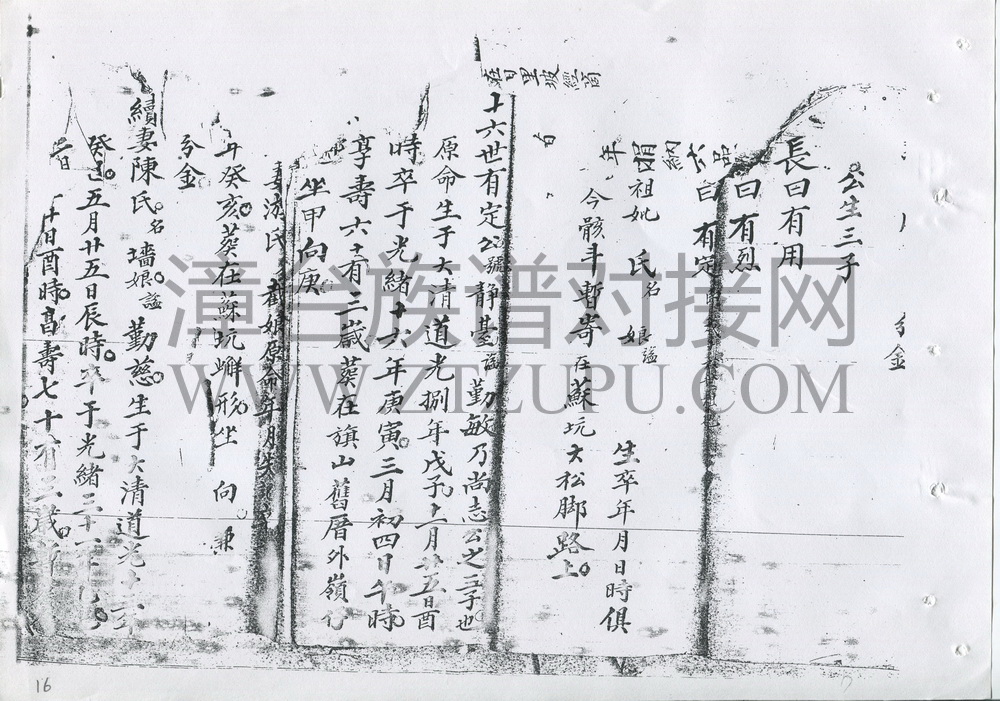 分金
公生三子
長曰有用
曰有烈
六曰有定
娟祖妣 氏名 娘謚 生卒年月日時俱
今骸斗暫寄在蘇坑大松脚路上
在日里坡經商
十六世有定公號靜臺謚勤敏乃尚志公之三子也
原命生于大清道光捌年戊子十一月廿五日酉
時卒于光緒十六年庚寅三月初四日午時
享壽六十有三歲葬在旗山舊厝外嶺
坐甲向庚
妻 氏 娘原命年月
癸亥葬在蘇坑 形坐 向 兼
分金
續妻陳氏名墙娘謚勤慈生于大清道光十 年
癸 五月廿五日辰時卒于光緒三十
十 日酉時高壽七十有三歲
漳台族谱对接网
WWW.ZTZUPU.COM
16